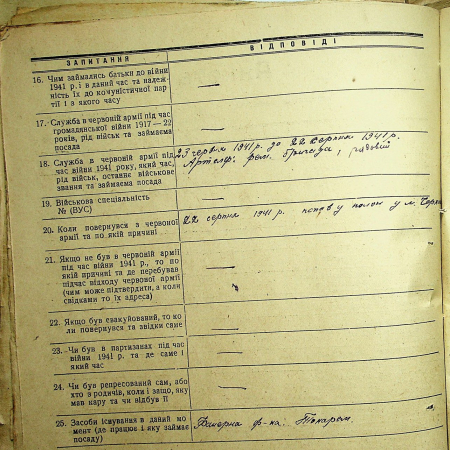 ЗАПИТАННЯ ВІДПОВІДІ
16. Чим займались батьки до війни
1941 р. і в даний час та належ-
ність їх до комуністичної пар-
тії і з якого часу —
17. Служба в червоній армії під час
громадянської війни 1917—22
років, рід військ та займаєма
посада —
18. Служба в червоній армії під
час війни 1941 року, який час,
рід військ, останнє військове
звання та займаєма посада
23 червня 1941 р. до 22 серпня 1941 р.
рядовий
19. Військова спеціяльність
№ (ВУС) —
20. Коли повернувся з червоної
армії та по якій причині
22 серпня 1941 р. попав у полон у м.
21. Якщо не був в червоній армії
під час війни 1941 р., то по
якій причині та де перебував
підчас відходу червоної армії
(чим може підтвердити, а коли
свідками то їх адреса) —
22. Якщо був евакуйований, то ко
ли повернувся та звідки саме —
23. Чи був в партизанах під час
війни 1941 р. та де саме і
який час —
24. Чи був репресований сам, або
хто з родичів, коли і защо, яку
мав кару та чи відбув її —
25. Засоби існування в даний мо
мент (де працює і яку займає
посаду)
ф-ка. Токарем.